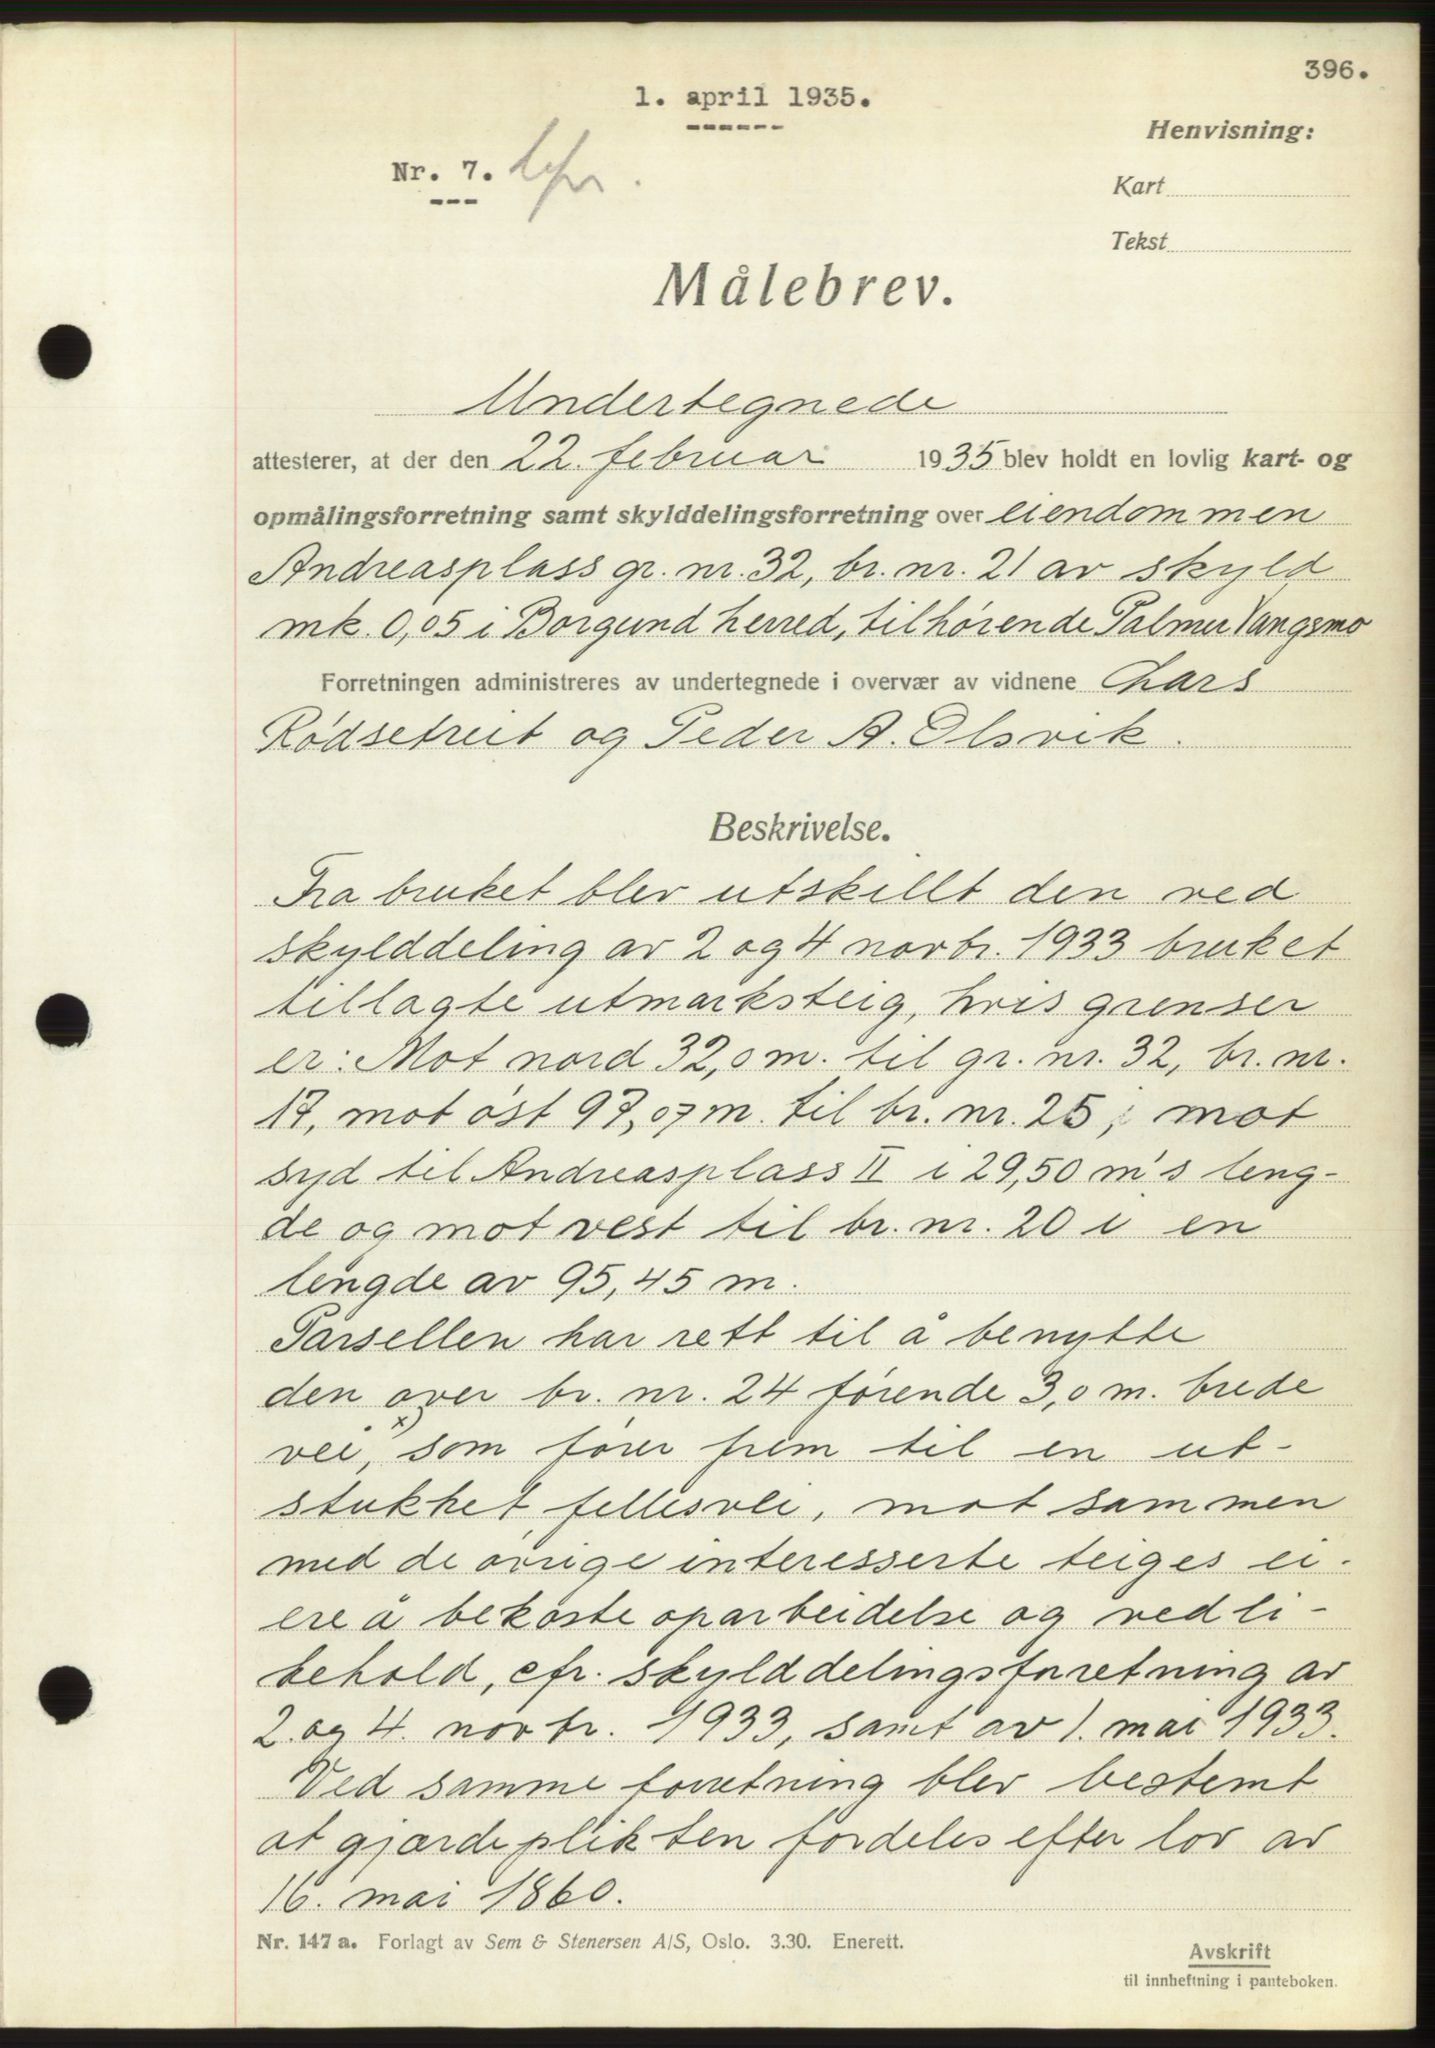 396.
1. april 1935.
Henvisning:
Nr. 7.
Kart
Tekst
Målebrev.
Undertegnede
attesterer, at der den 22. februar 1935 blev holdt en lovlig kart- og
opmålingsforretning samt skylddelingsforretning over eiendommen
Andreasplass gr. nr. 32, br. nr. 21 av skyld
mk. 0,05 i Borgund herred, tilhørende Palmer Vangsmo
Forretningen administreres av undertegnede i overvær av vidnene Lars
Rødsetreit og Peder A. Olsvik.
Beskrivelse.
Fra bruket blev utskillt den ved
skylddeling av 2 og 4 novbr. 1933 bruket
tillagte utmarksteig, hvis grenser
er: Mot nord 32,0 m. til gr. nr. 32, br. nr.
17, mot øst 97,07 m. til br. nr. 25, mot
syd til Andreasplass II i 29,50 m's leng-
de og mot vest til br. nr. 20 i en
lengde av 95,45 m.
Parsellen har rett til å benytte
den over br. nr. 24 førende 3,0 m. brede
vei, x) som fører frem til en ut-
stukket fellesvei, mot sammen
med de øvrige interesserte teiges ei-
ere å bekoste oparbeidelse og vedli-
behold, cfr. skylddelingsforretning av
2. og 4. novbr. 1933, samt av 1. mai 1933.
Ved samme forretning blev bestemt
at gjærdeplikten fordeles efter lov av
16. mai 1860.
Nr. 147 a. Forlagt av Sem & Stenersen A/S, Oslo. 3.30. Enerett.
Avskrift
til innheftning i panteboken.